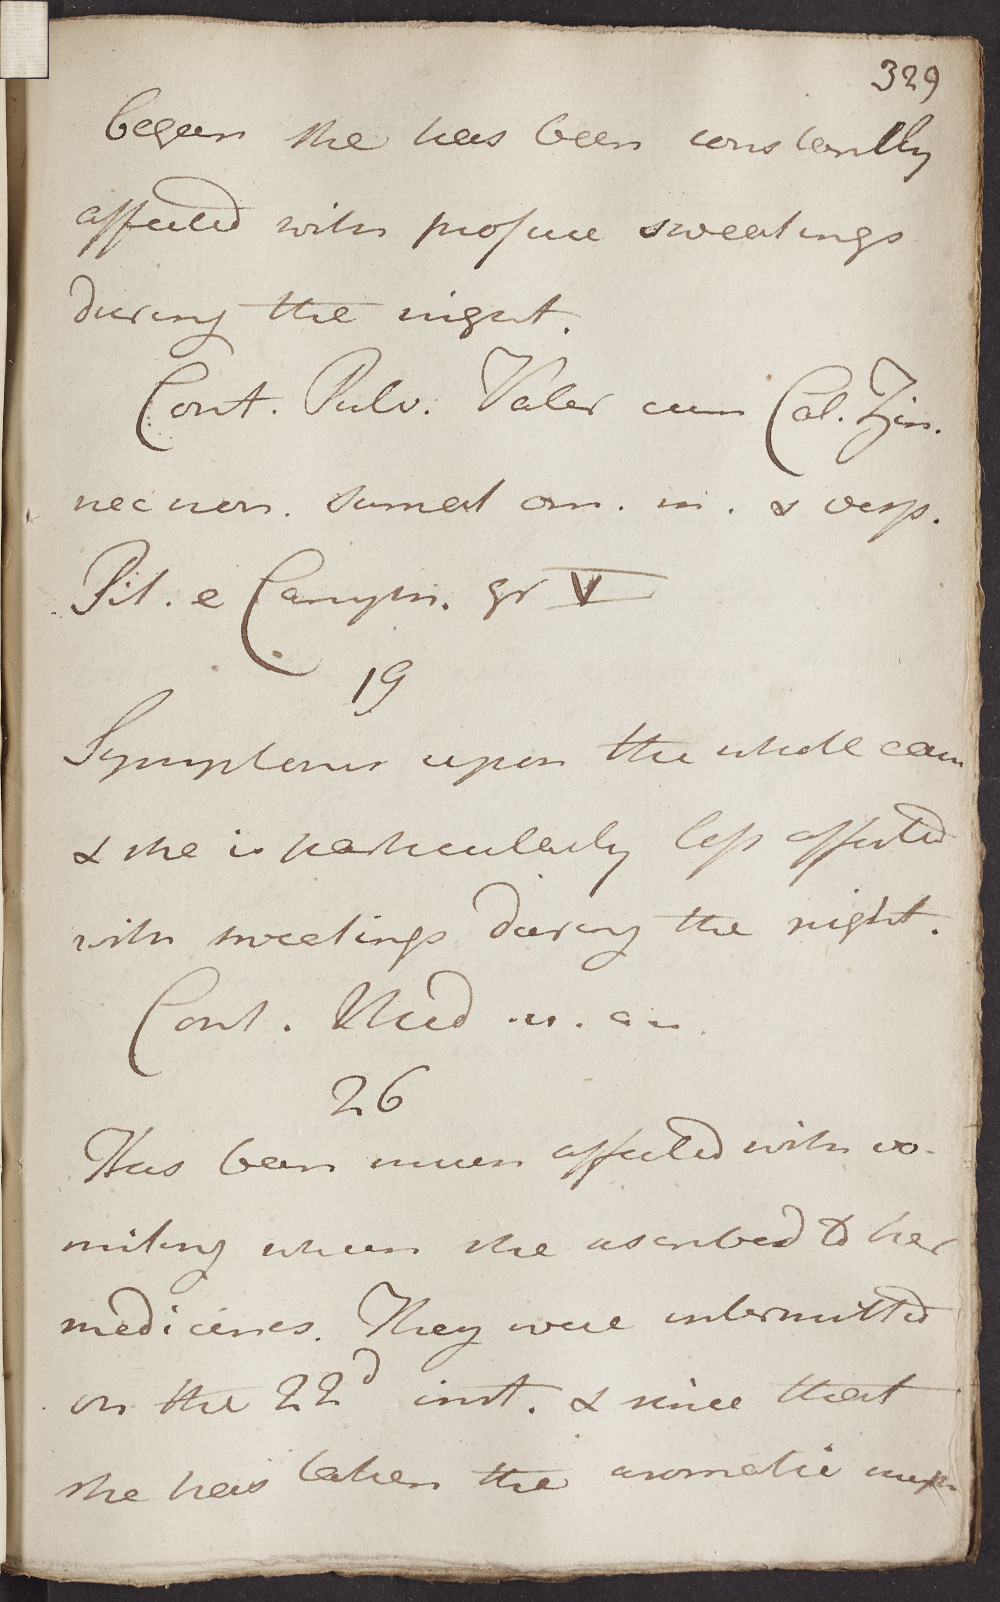 329
began she has been constantly
affected with profuse sweatings
during the night.
Cont. Pulv. Valer cum Cal. Zin.
necnon. Sumat om. m. & vesp.
Pil. e Camph. gr V
19
Symptoms upon the whole easier
& she is particularly less affected
with sweatings during the night.
Cont. Med.
26
Has been much affected with vo-
miting which she ascribed to her
medicines. They were intermitted
on the 22d inst. & since that
she has taken the aromatic